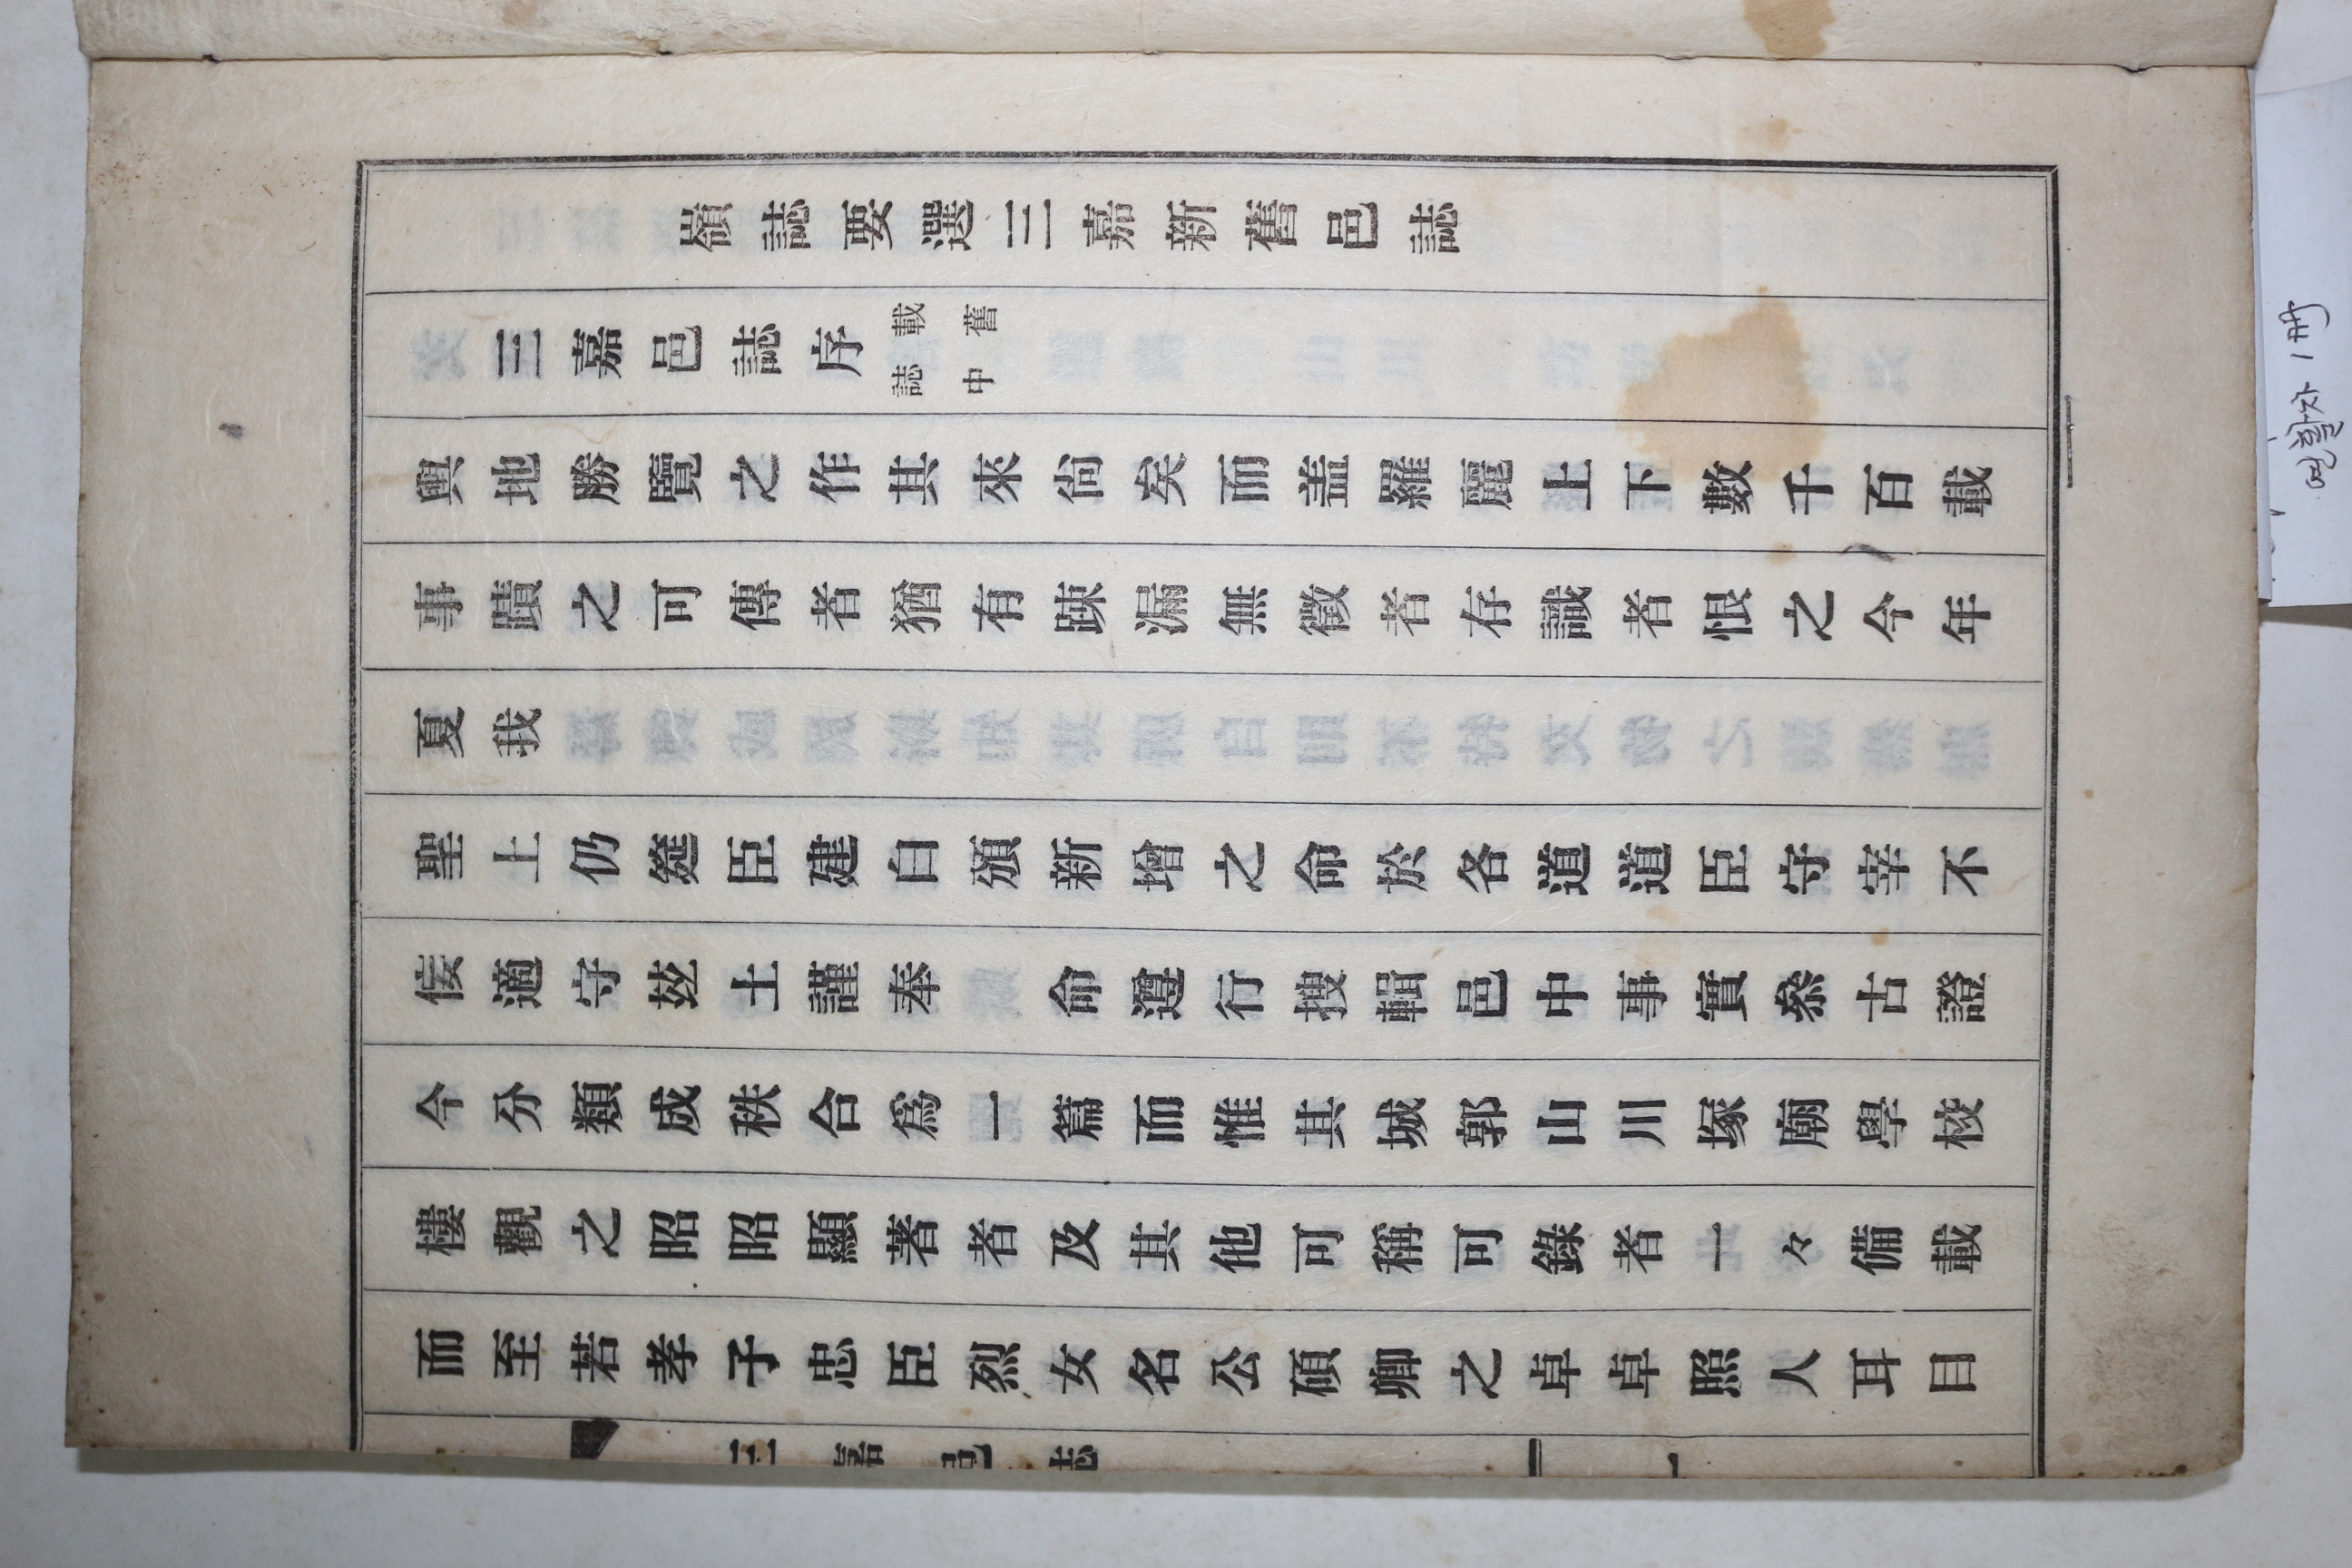 嶺誌要選三嘉新舊邑誌
三嘉邑誌序 載舊誌中
輿地勝覽之作其來尙矣而盖羅麗上下數千百載
事蹟之可傳者猶有踈漏無徵者存識者恨之今年
夏我
聖上仍筵臣建白頒新增之命於各道道臣守宰不
佞適守玆土謹奉 命遵行搜輯邑中事實叅古證
今分類成秩合爲一篇而惟其城郭山川塚廟學校
樓觀之昭昭顯著者及其他可稱可錄者一々備載
而至若孝子忠臣烈女名公碩卿之卓卓照人耳目
三嘉邑誌
一
연활자 1冊